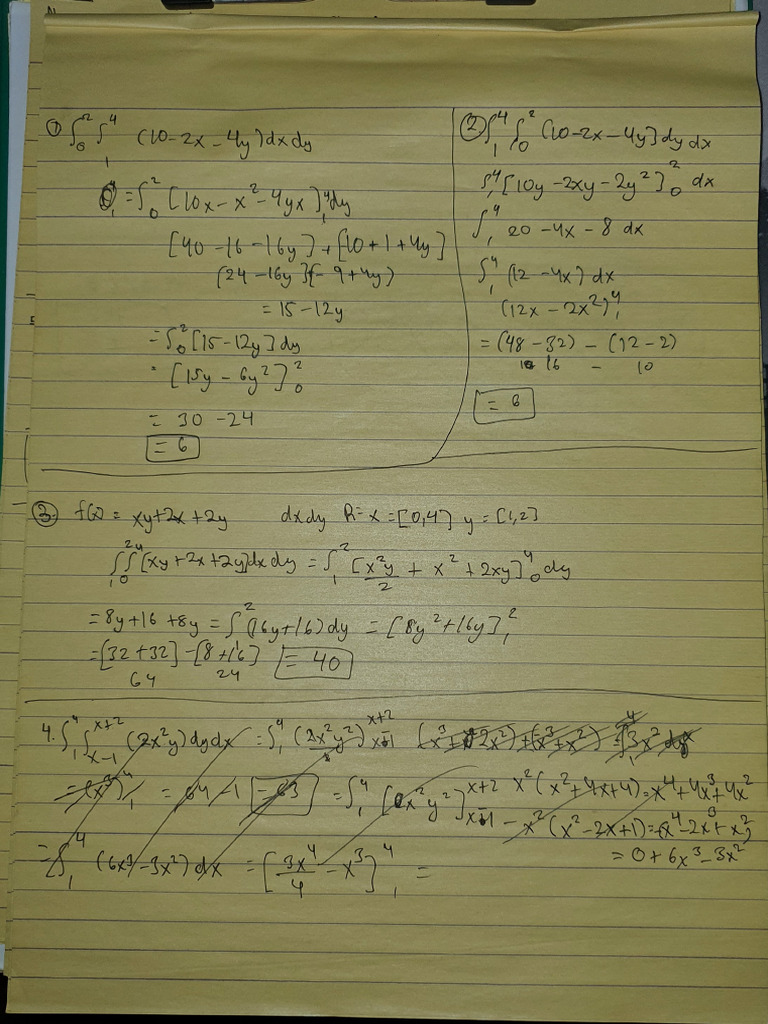 ① ∫₀² ∫₁⁴ (10-2x-4y)dxdy
= ∫₀² [10x-x²-4yx]₁⁴ dy
[40-16-16y] + [10+1+4y]
(24-16y)(-9+4y)
= 15-12y
= ∫₀² [15-12y]dy
= [15y-6y²]₀²
= 30-24
= 6
② ∫₁⁴ ∫₀² (10-2x-4y)dydx
∫₁⁴ [10y-2xy-2y²]₀² dx
∫₁⁴ 20-4x-8 dx
∫₁⁴ (12-4x)dx
(12x-2x²)₁⁴
= (48-32) - (12-2)
16 - 10
= 6
③ f(x) = xy+2x+2y dxdy R= x=[0,4] y=[1,2]
∫₁² ∫₀⁴ [xy+2x+2y]dxdy = ∫₁² [x²y/2 + x² + 2xy]₀⁴ dy
= 8y+16+8y = ∫₁² (16y+16)dy = [8y²+16y]₁²
= [32+32] - [8+16] = 40
64 24
4. ∫₁⁴ ∫ₓ₋₁ˣ⁺² (2x²y)dydx = ∫₁⁴ (2x²y²)ₓ₋₁ˣ⁺² 3x²
= (x³)₁⁴ = 64-1 = 63 = ∫₁⁴ [x²y²]ₓ₋₁ˣ⁺² x²(x²+4x+4)=x⁴+4x³+4x²
- x²(x²-2x+1)=(x⁴-2x³+x²)
= 0+6x³-3x²
= ∫₁⁴ (6x³-3x²)dx = [3x⁴/4 - x³]₁⁴ =